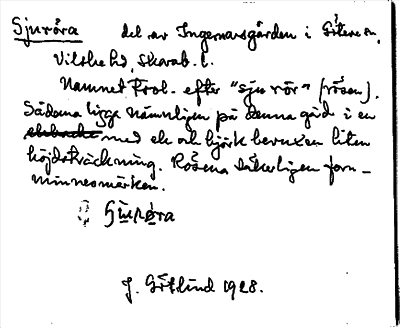 Sjuröra del av Ingemarsgården i Götene sn,
Vilske hd, Skarab. l.
Namnet trol. efter "sju rör" (rösen).
Sådana ligga nämligen på denna gård i en
med ek och björk bevuxen liten
höjdsträckning. Rösena säkerligen forn-
minnesmärken.
J. Götlind 1928.